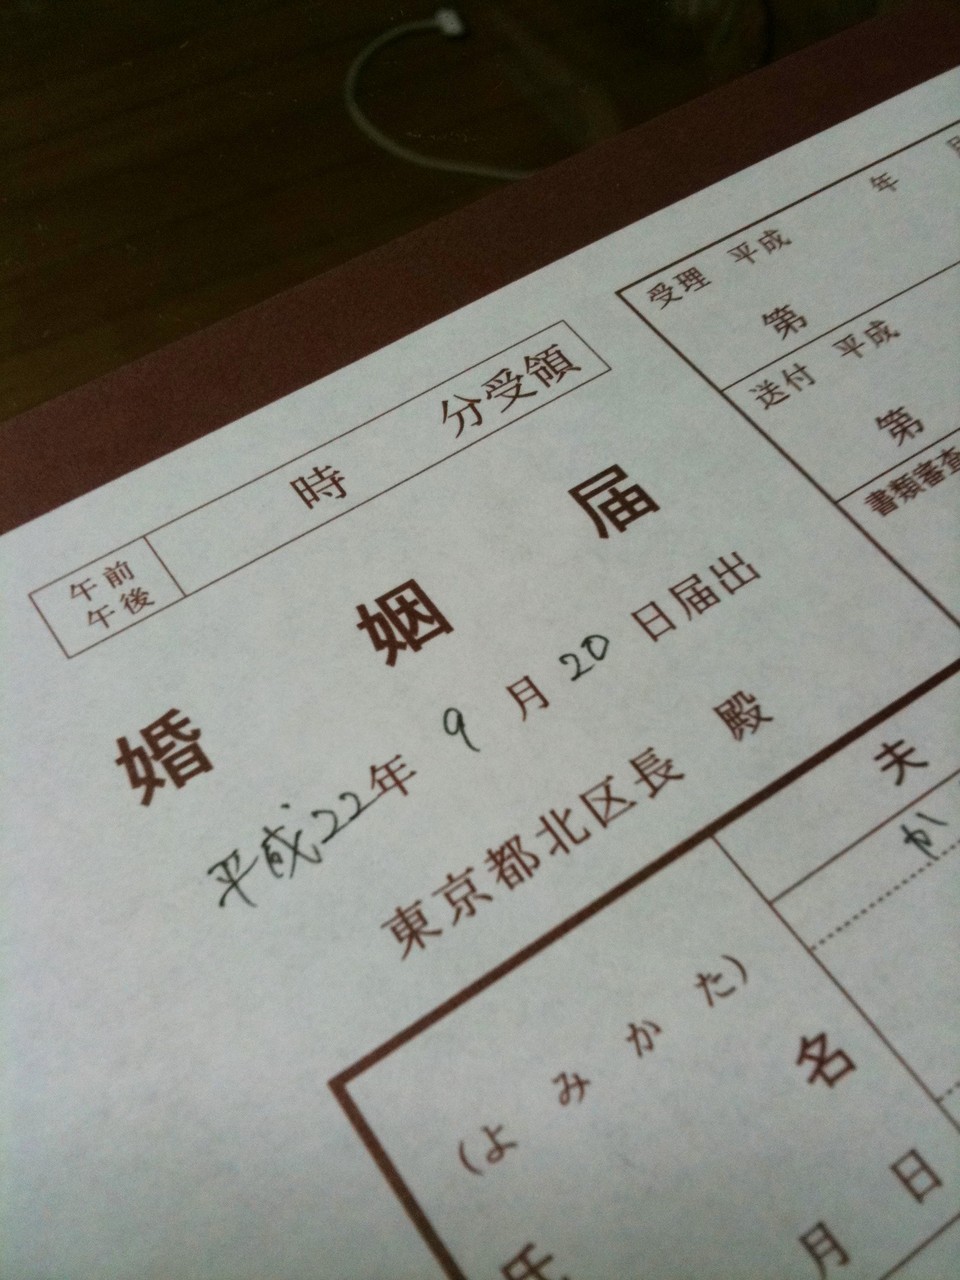 午前
午後
時 分受領
婚姻届
平成22年9月20日届出
東京都北区長 殿
受理 平成 年 月
第
送付 平成
第
書類審査
夫
か
(よみかた)
氏 名
月 日